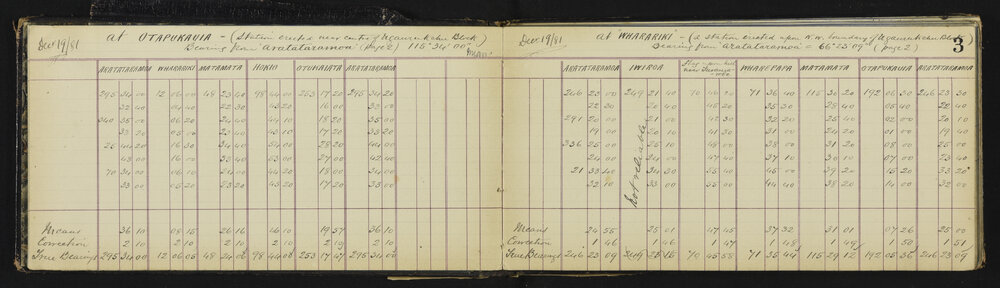 Dec 19/81 at OTAPUKAUIA - (Station erected near centre of Ngaurukehu Block)
Bearing from "Aratataramoa" (page 2) 115° 34' 00" mean
ARATATARAMOA WHARARIKI MATAMATA HOKIO OTUWAIATA ARATATARAMOA
295 34 00 12 06 00 48 23 40 98 44 00 253 17 20 295 34 20
32 40 04 40 22 30 43 20 16 00 33 00
340 35 00 06 20 24 00 44 10 18 20 35 00
33 20 05 00 23 00 43 10 17 20 33 20
25 44 20 16 30 34 40 54 00 28 20 44 00
43 00 16 00 33 40 53 00 27 00 42 40
70 34 00 06 10 24 00 44 20 18 20 34 00
33 00 05 20 23 20 43 20 17 20 33 00
Means 36 10 08 15 26 16 46 10 19 57 36 10
Correction 2 10 2 10 2 10 2 10 2 10 2 10
True Bearings 295 34 00 12 06 05 48 24 06 98 44 00 253 17 47 295 34 00
Dec 19/81 at WHARARIKI - (a station erected upon N.W. boundary of Ngaurukehu Block)
Bearing from "Aratataramoa" = 66° 23' 09" (page 2)
3
ARATATARAMOA IWIROA Flag upon hill near WHAREPAPA MATAMATA OTAPUKAUIA ARATATARAMOA
246 23 00 249 21 40 70 46 20 71 36 40 115 30 20 192 06 30 246 23 30
22 30 20 40 45 20 35 30 28 40 05 40 22 40
291 20 00 21 00 42 30 32 20 25 40 02 00 20 10
19 00 20 10 41 30 31 30 24 20 01 00 19 40
336 25 00 26 00 48 00 38 00 31 20 08 00 25 00
24 00 24 00 47 40 37 10 30 10 07 00 23 40
21 33 40 34 30 55 40 45 00 39 20 15 20 33 20
32 10 33 00 55 00 44 40 38 20 14 00 32 00
Not reliable
Means 24 55 25 01 47 45 37 32 31 01 07 26 25 00
Correction 1 46 1 46 1 47 1 48 1 49 1 50 1 51
True Bearings 246 23 09 249 23 15 70 45 58 71 35 44 115 29 12 192 05 36 246 23 09